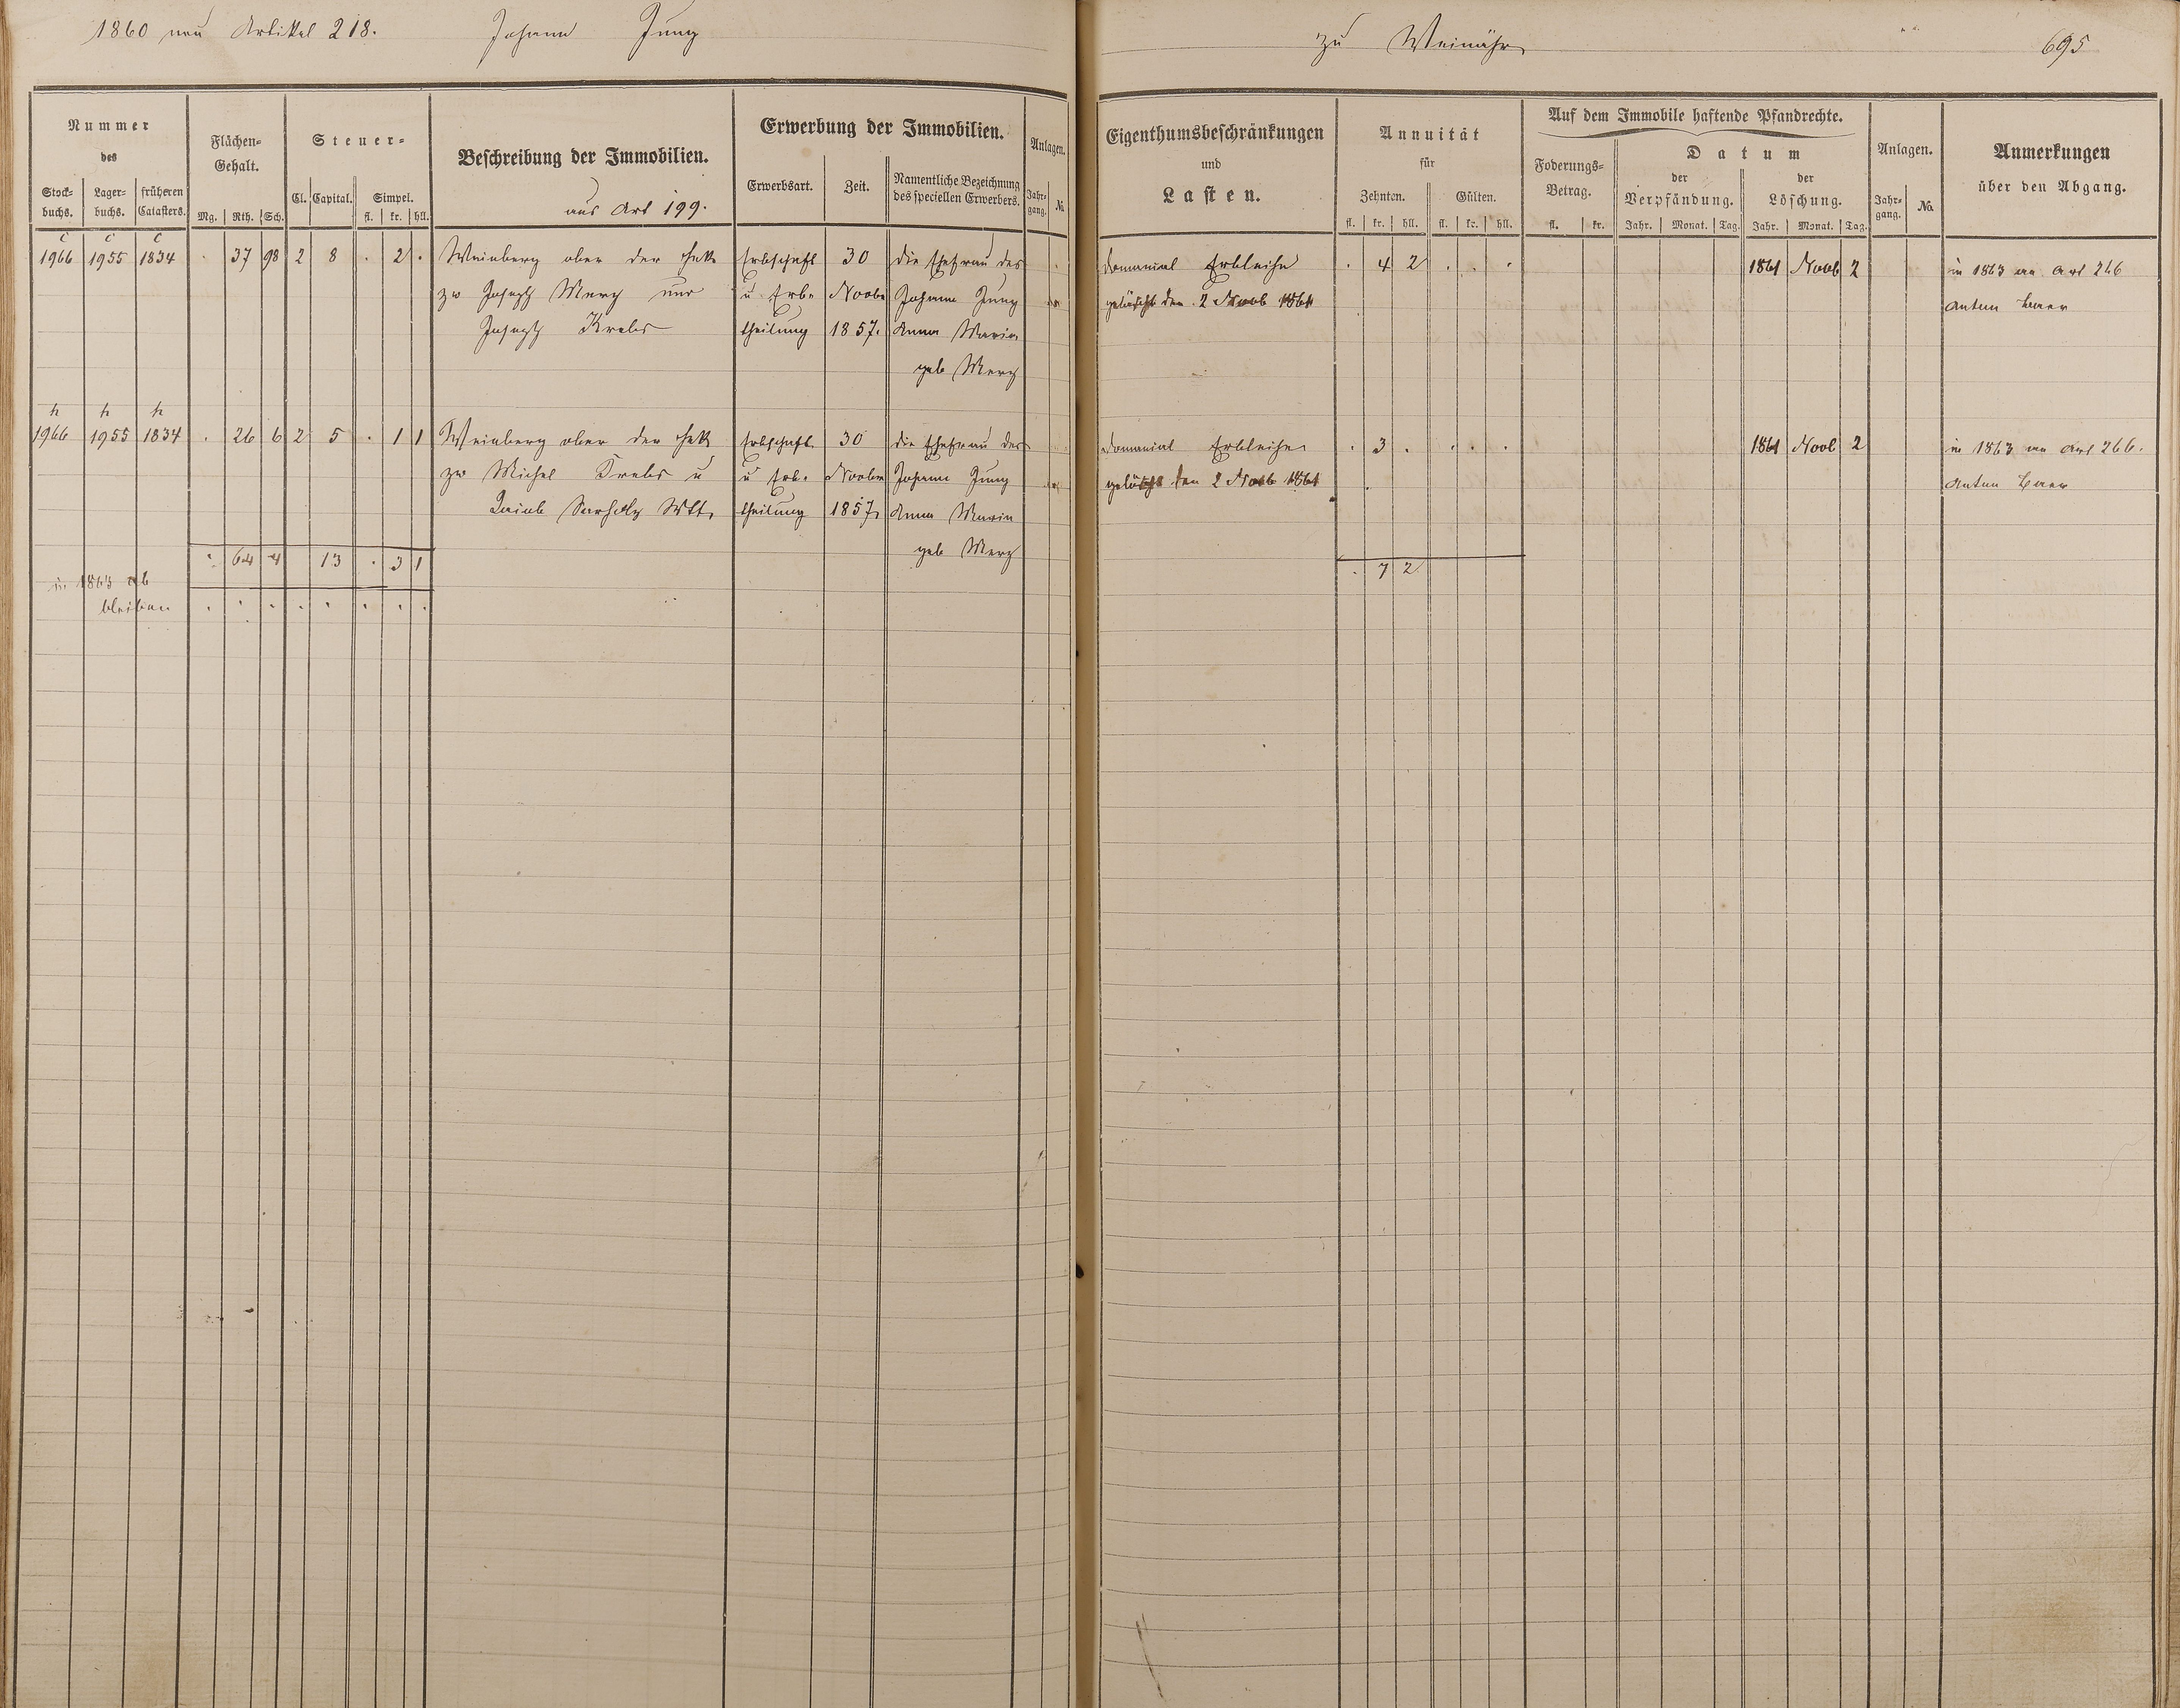 1860 neu Artikel 218. Johann Jung
zu Weinähr 695
Nummer
des
Stock-buchs. Lager-buchs. früheren Catasters.
Flächen-Gehalt.
Mg. Rth. Sch.
Steuer-
Cl. Capital. Simpel.
fl. kr. hll.
Beschreibung der Immobilien.
aus Art 199.
Erwerbung der Immobilien.
Erwerbsart. Zeit. Namentliche Bezeichnung des speciellen Erwerbers.
Anlagen.
Jahr-gang. No.
Eigenthumsbeschränkungen
und
Lasten.
Annuität
für
Zehnten. Gülten.
fl. kr. hll. fl. kr. hll.
Auf dem Immobile haftende Pfandrechte.
Foderungs-Betrag.
fl. kr.
Datum
der Verpfändung. der Löschung.
Jahr. Monat. Tag. Jahr. Monat. Tag.
Anlagen.
Jahr-gang. No.
Anmerkungen
über den Abgang.
c c c
1966 1955 1834 . 37 98 2 8 . 2 . Weinberg ober der Erbschaft 30 die Ehefrau des Domanial Erbleihe . 4 2 . . . 1861 Novb 2 in 1863 an Art 266
zw Joseph Merz und u Erb- Novbr Johann Jung gelöscht den 2 Novb 1861 Anton
Joseph Krebs theilung 1857. Anna Maria
geb Merz
h h h
1966 1955 1834 . 26 6 2 5 . 1 1 Weinberg ober der Erbschaft 30 die Ehefrau des Domanial Erbleihe . 3 . . . . 1861 Novb 2 in 1863 an Art 266.
zw Michel Krebs u u Erb- Novbr Johann Jung gelöscht den 2 Novb 1861 Anton
Jacob theilung 1857. Anna Maria
geb Merz
. 64 4 13 . 3 1
. 7 2
in 1863 ab
bleiben . . . . . . . .